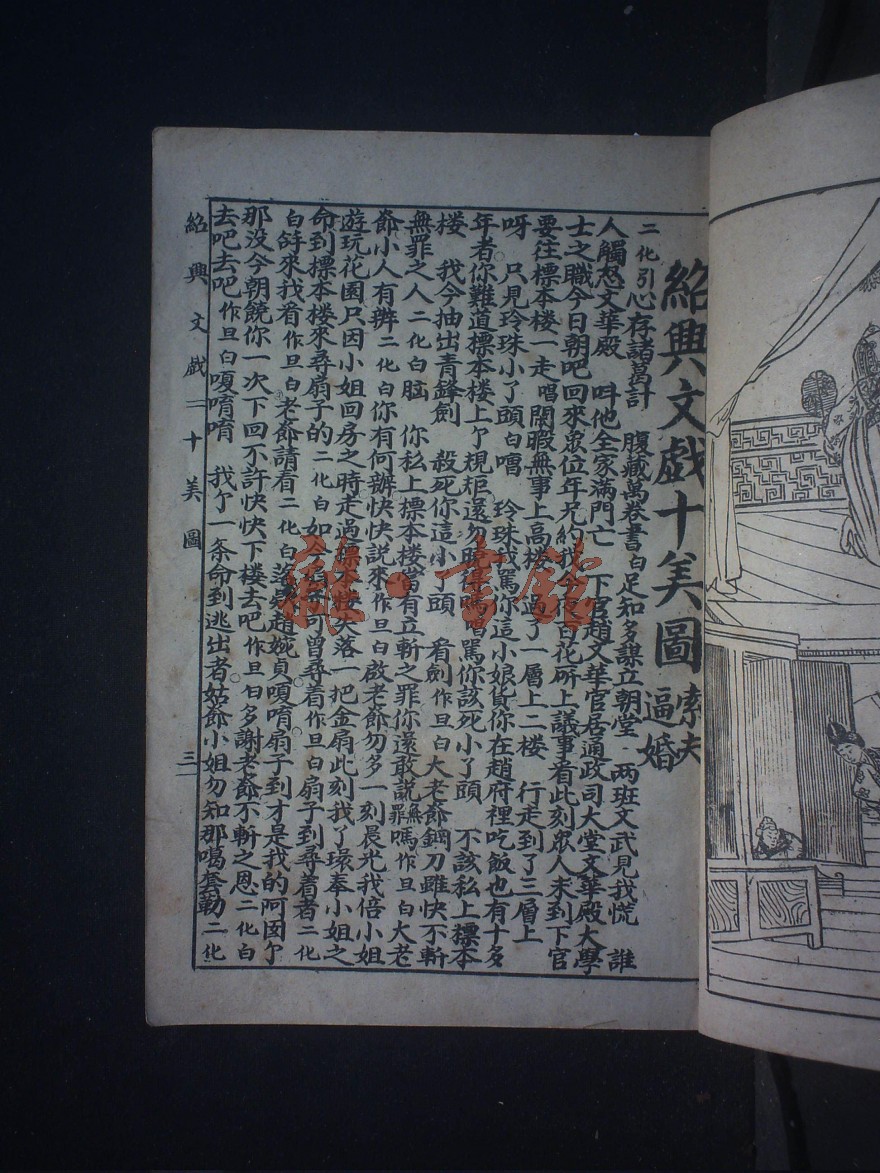 紹興文戲十美圖 索夫 逼婚
二化引心存諸萬計 腹藏萬卷書白足知多謀立朝堂 兩班文武見我慌 誰
人觸怒文華殿 叫他全家滿門亡 下官趙文華官居通政司大堂文華殿大學
士之職今日朝吧回來衆位年兄約我今夜百花所上議事看此刻衆人未到下官
要往標本楼一走唱閑暇無事上高楼 過了一層上二楼 行走到了三層上
呀 只見玲珠小丫頭白嚐 玲珠我罵你這小娘貨你在趙府裡吃飯也有十多
年者你難道標本楼上个規矩還勿曉得嗎唱罵你該死小了頭 不該私上標本
楼 我今抽出青鋒劍 殺死你這小丫頭 看劍作旦白大老爺鋼刀雖快不斬
無罪之人二化白 你私上標本楼當有立斬之罪你還敢說無罪嗎作旦白大老
爺小人有辨二化白你有何辦快快說來作旦白啟老爺勿多一刻晨光我倍小姐
遊玩花園只因小姐回房之時走過標本楼失落一把金扇此刻我了環奉小姐之
命到標本楼來尋扇子的二化白如今扇子可曾尋着作旦白扇子到尋着者二化
白 來我看作旦白老爺請看二化白 趙婉貞嗄唷扇子到才是我的阿囡个
那没今朝饒你一次下回不許快快下楼去吧作旦白多謝老爺不斬之恩二化白
去吧去吧作旦白嗄唷唷 我个一条命到逃出者姑爺小姐勿知那噶套勒二化
紹興文戲 二十美圖 三
雜·書館